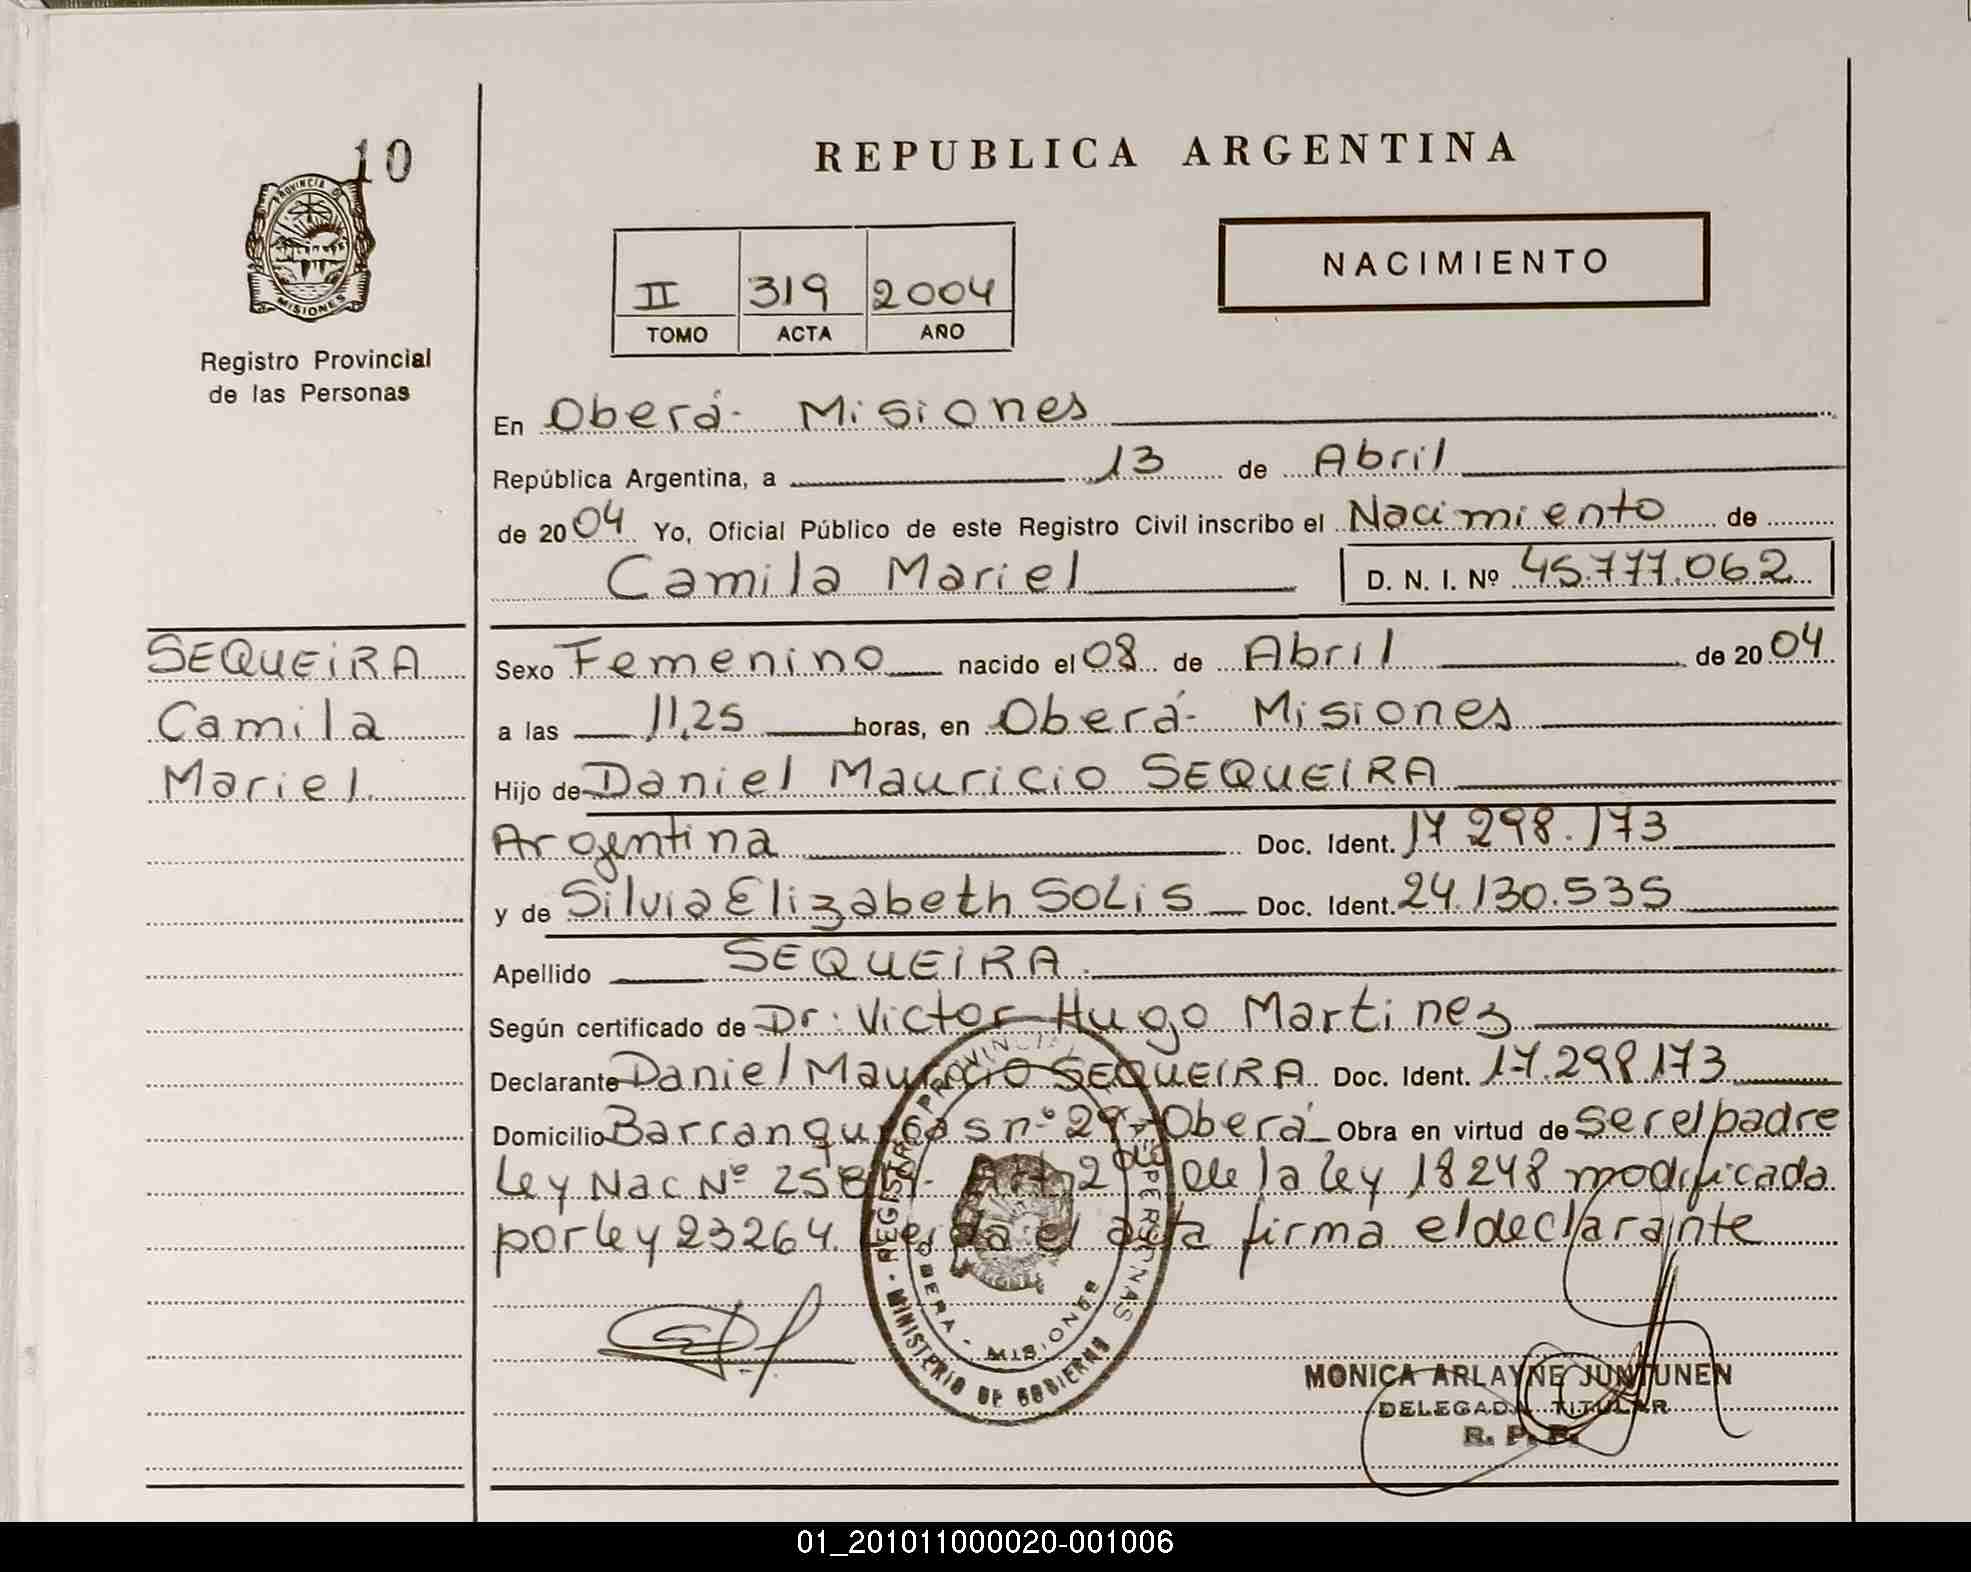 10
PROVINCIA DE
MISIONES
Registro Provincial
de las Personas
REPUBLICA ARGENTINA
II 319 2004
TOMO ACTA AÑO
NACIMIENTO
En Oberá- Misiones
República Argentina, a 13 de Abril
de 2004 Yo, Oficial Público de este Registro Civil inscribo el Nacimiento de
Camila Mariel D. N. I. Nº 45.777.062
SEQUEIRA
Camila
Mariel.
Sexo Femenino nacido el 08 de Abril de 2004
a las 11,25 horas, en Oberá- Misiones
Hijo de Daniel Mauricio SEQUEIRA
Argentina Doc. Ident. 17.298.173
y de Silvia Elizabeth SOLIS Doc. Ident. 24.130.535
Apellido SEQUEIRA.
Según certificado de Dr. Victor Hugo Martinez
Declarante Daniel Mauricio SEQUEIRA Doc. Ident. 17.298.173
Domicilio Barranqueras nº Oberá Obra en virtud de ser el padre
Ley Nac Nº de la ley 18248 modificada
por ley 23264. el acta firma el declarante
REGISTRO PROVINCIAL PERSONAS
OBERA - MISIONES
MINISTERIO DE GOBIERNO
MONICA ARLAYNE JUNTUNEN
DELEGADA TITULAR
R. P. P.
01_201011000020-001006